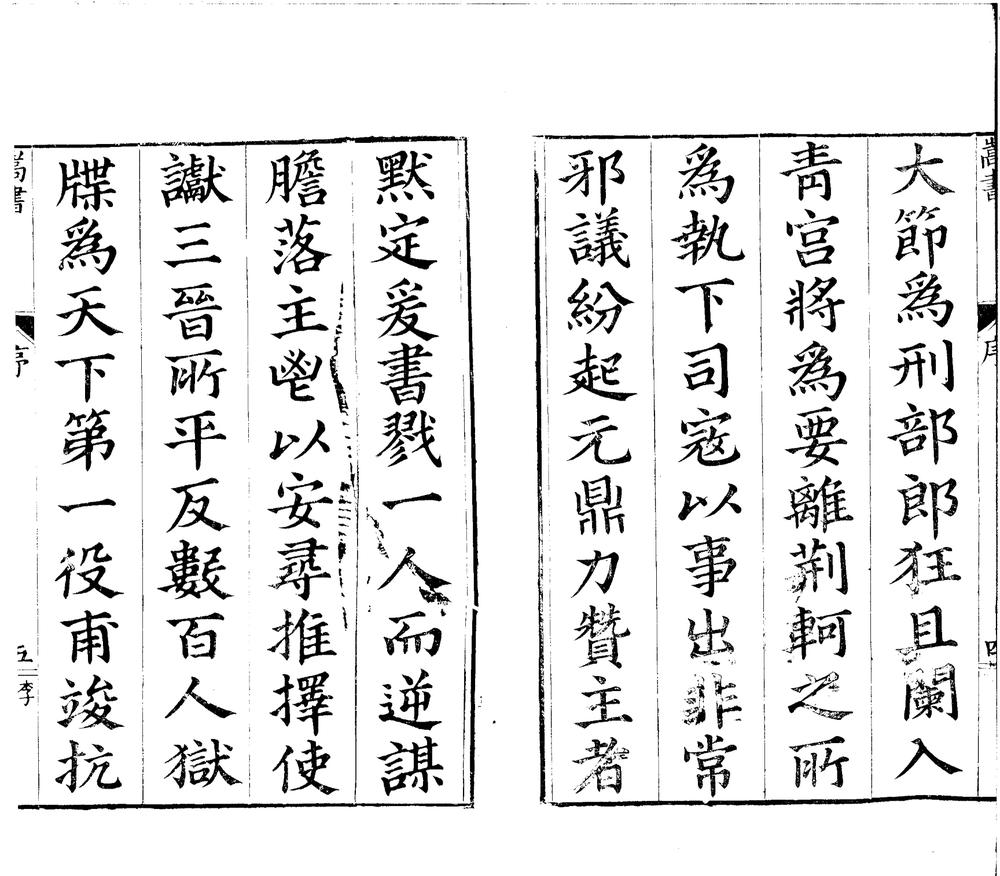 嵩書
序
四
大節爲刑部郎狂且闌入
靑宮將爲要離荆軻之所
爲執下司寇以事出非常
邪議紛起元鼎力贊主者
默定爰書戮一人而逆謀
膽落主鬯以安尋推擇使
讞三晉所平反數百人獄
牒爲天下第一役甫竣抗
嵩書
序
五
李